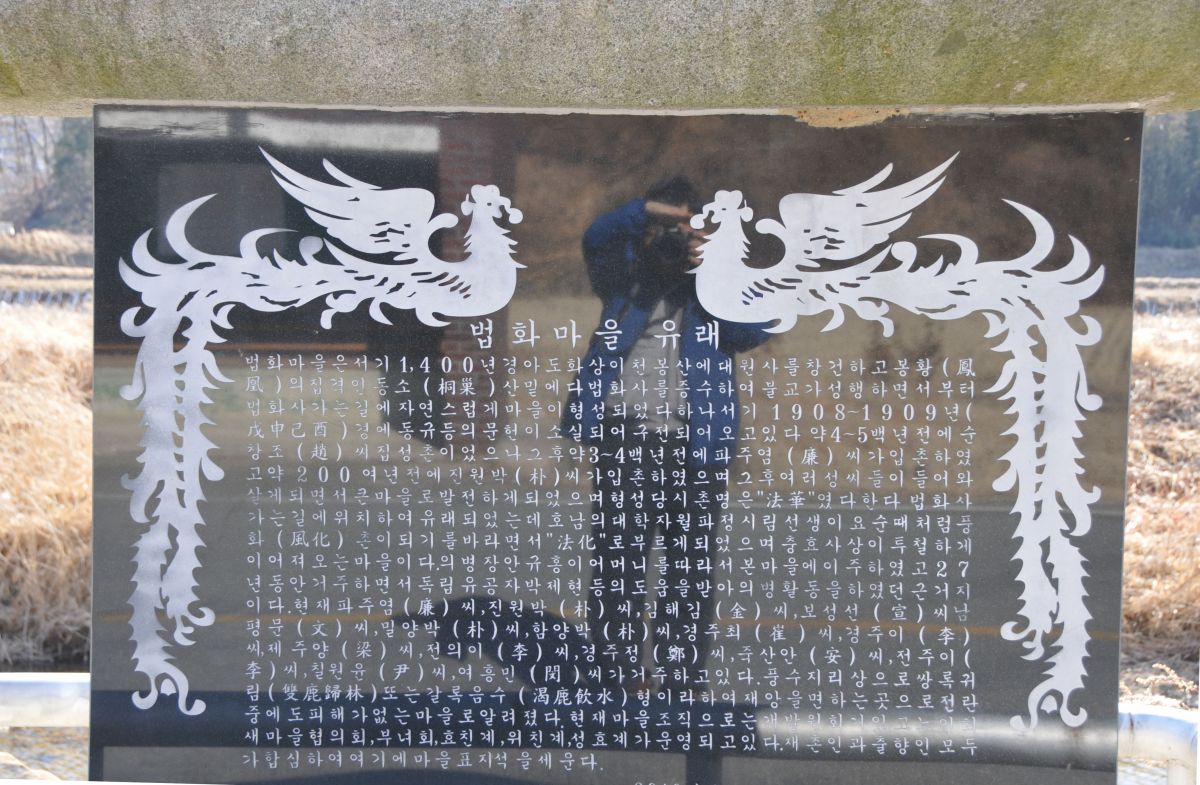 법화마을유래
법화마을은서기1,400년경아도화상이천봉산에대원사를창건하고봉황(鳳
凰)의집격인동소(桐巢)산밑에다법화사를증수하여불교가성행하면서부터
법화사가는길에자연스럽게마을이형성되었다하나서기1908~1909년(
戊申己酉)경에동규등의문헌이소실되어구전되어오고있다.약4~5백년전에순
창조(趙)씨집성촌이었으나그후약3~4백년전에파주염(廉)씨가입촌하였
고약200여년전에진원박(朴)씨가입촌하였으며그후여러성씨들이들어와
살게되면서큰마을로발전하게되었으며형성당시촌명은"法華"였다한다.법화사
가는길에위치하여유래되었는데호남의대학자월파정시림선생이요순때처럼풍
화(風化)촌이되기를바라면서"法化"로부르게되었으며충효사상이투철하게
이어져오는마을이다.의병장안규홍이어머니를따라서본마을에이주하였고27
년동안거주하면서독립유공자박제현등의도움을받아의병활동을하였던근거지
이다.현재파주염(廉)씨,진원박(朴)씨,김해김(金)씨,보성선(宣)씨남
평문(文)씨,밀양박(朴)씨,함양박(朴)씨,경주최(崔)씨,경주이(李)
씨,제주양(梁)씨,전의이(李)씨,경주정(鄭)씨,죽산안(安)씨,전주이(
李)씨,칠원윤(尹)씨,여흥민(閔)씨가거주하고있다.풍수지리상으로쌍록귀
림(雙鹿歸林)또는갈록음수(渴鹿飮水)형이라하여재앙을면하는곳으로전란
중에도피해가없는마을로알려졌다.현재마을조직으로는
새마을협의회,부녀회,효친계,위친계,성효계가운영되고있다.재촌인과출향인모두
가합심하여여기에마을표지석을세운다.